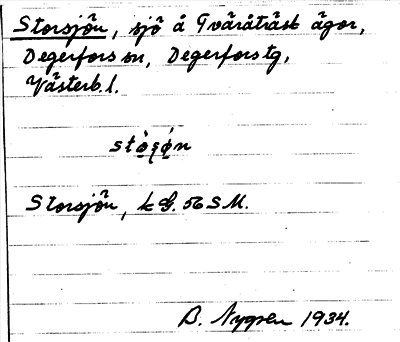 Storsjön, sjö å Tväråträsk ägor,
Degerfors sn, Degerfors tg,
Västerb. l.
Storsjön, k G. 56 S M.
B. Nygren 1934.